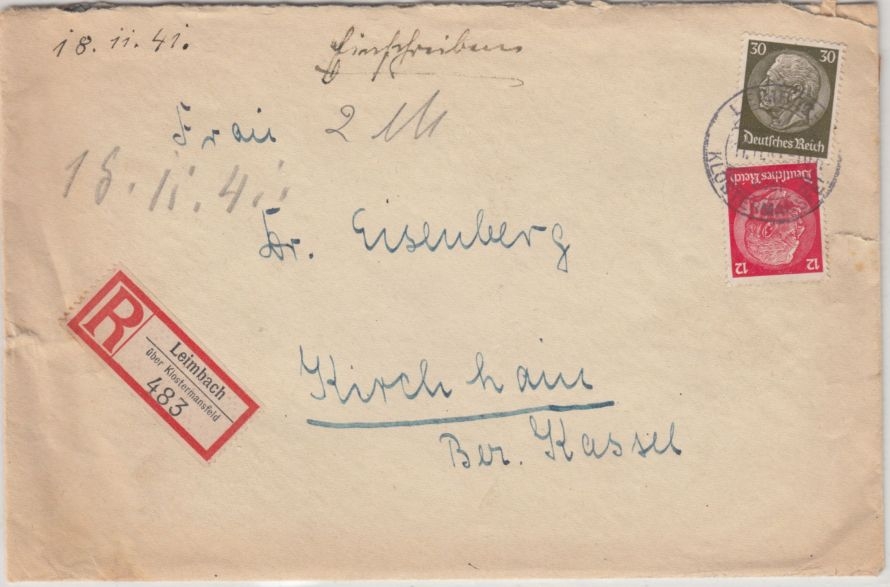 18. 11. 41.
Einschreiben
30 30
Deutsches Reich
Frau 2 M
18. 11. 41.
Dr. Eisenberg
Deutsches Reich
12 12
R
Leimbach
über Klostermansfeld
483
Kirchhain
Bez. Kassel